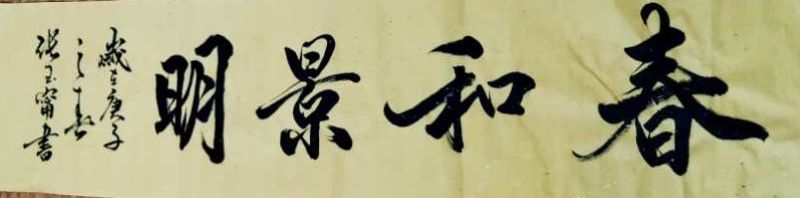 春和景明
歲在庚子
之春
張玉甯書